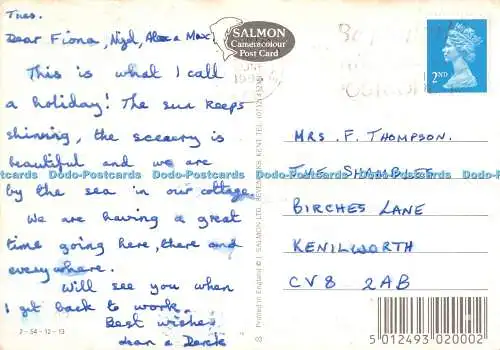 Tues.
Dear Fiona, Nigel, & Max,
This is what I call
a holiday! The sun keeps
shinning, the scenery is
beautiful and we are
by the sea in our cottage.
We are having a great
time going here, there and
everywhere.
Will see you when
I get back to work.
Best wishes
& Derek
2-54-12-13
SALMON
Cameracolour
Post Card
Printed in England © J SALMON LTD. SEVENOAKS KENT. TEL.
2ND
MRS. F. THOMPSON.
THE SHAMBLES
BIRCHES LANE
KENILWORTH
CV8 2AB
5 012493 020002
Dodo-Postcards Dodo-Postcards Dodo-Postcards Dodo-Postcards